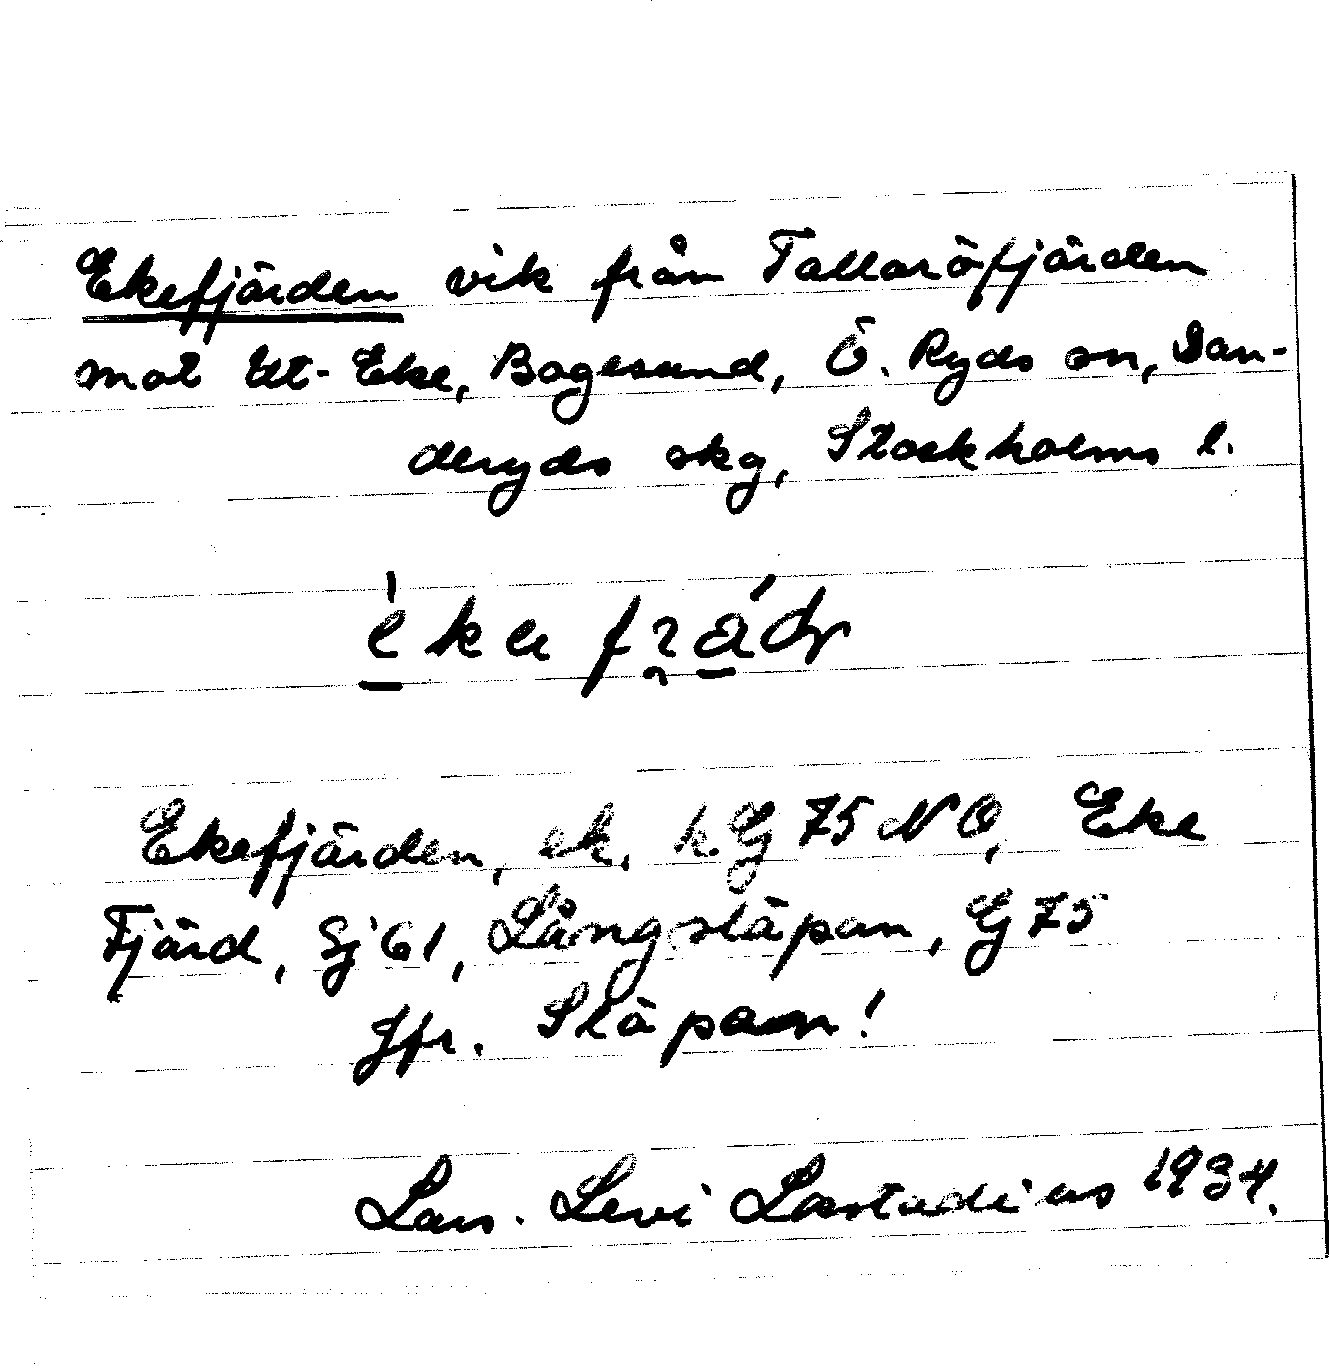 Ekefjärden vik från Tallaröfjärden
mot Ut-Eke, Bogesund, Ö. Ryds sn, Dan-
deryds skg, Stockholms l.
Ekefjärden, ek. k. G 75 NO, Eke
Fjärd, Sj 61, Långstäpan, G 75
Jfr. Stäpan!
Lars. Levi Læstadius 1934.